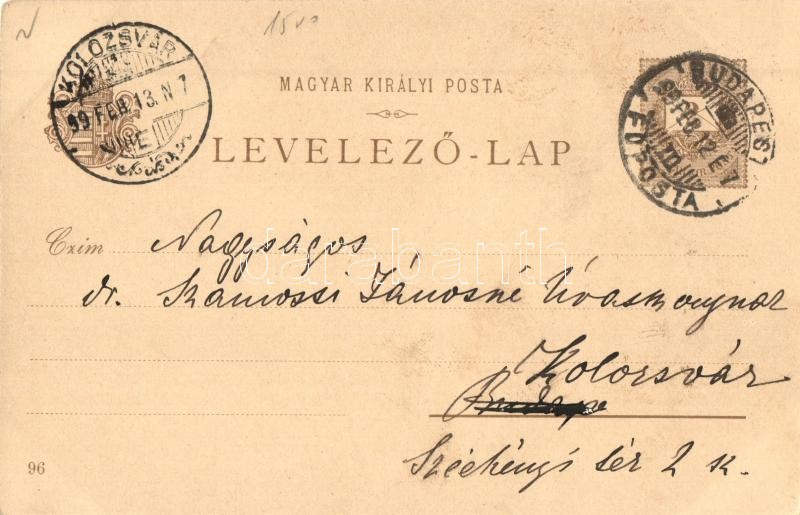 1500
KOLOZSVÁR
99 FEB. 13. N 7
BUDAPEST
99 FEB. 12 E 7
FŐPOSTA
MAGYAR KIRÁLYI POSTA
LEVELEZŐ-LAP
Czim Nagyságos
dr. Szamossi Jánosné Úrasszonynak
Kolozsvár
Széchényi tér 2 sz.
96
darabanth